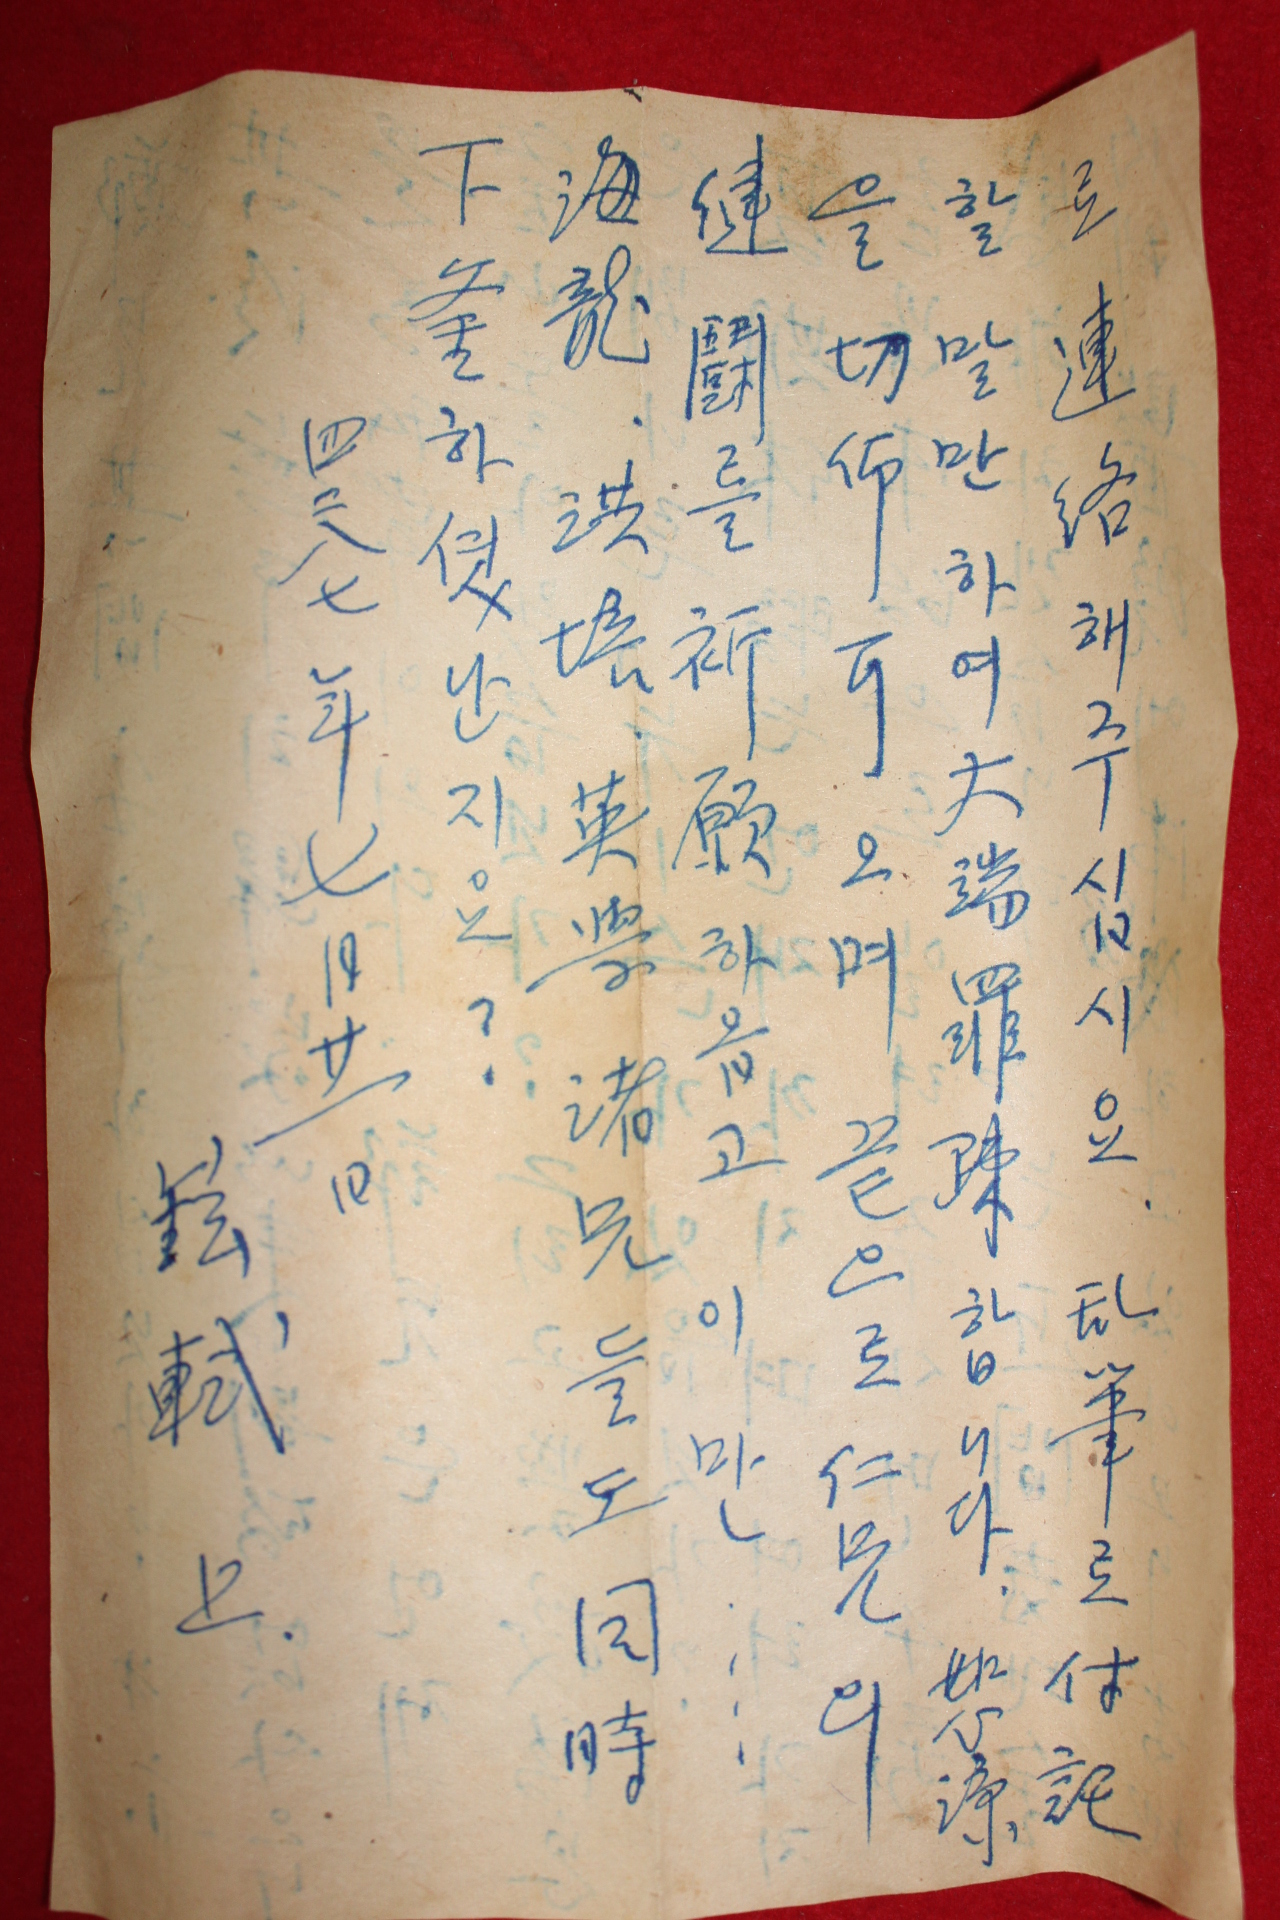 로 連絡해주십시요. 乱筆로 付託
할 말만하여 大端罪悚합니다. 恕諒
을 切仰耳오며 끝으로 仁兄의
健鬪를 祈願하옵고 이만・・・・
海龍. 洪培. 英學 諸兄들도 同時
下釜하였난지요?
四二八七年七月廿一日
鉉軾 上.